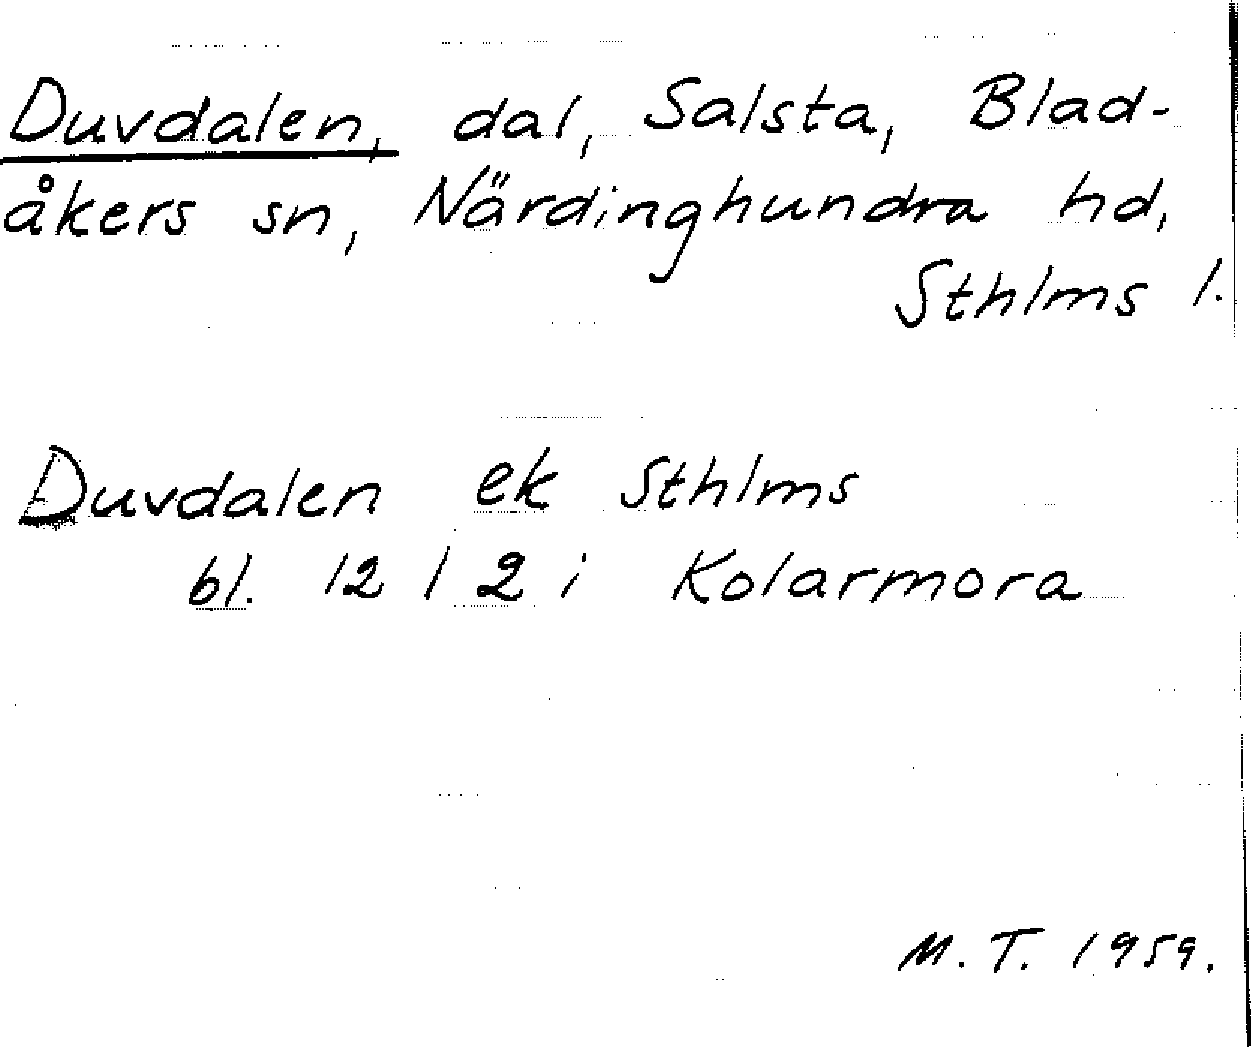 Duvdalen, dal, Salsta, Blad-
åkers sn, Närdinghundra hd,
Sthlms l.
Duvdalen ek Sthlms
bl. 12 l 2 i Kolarmora
M. T. 1959.